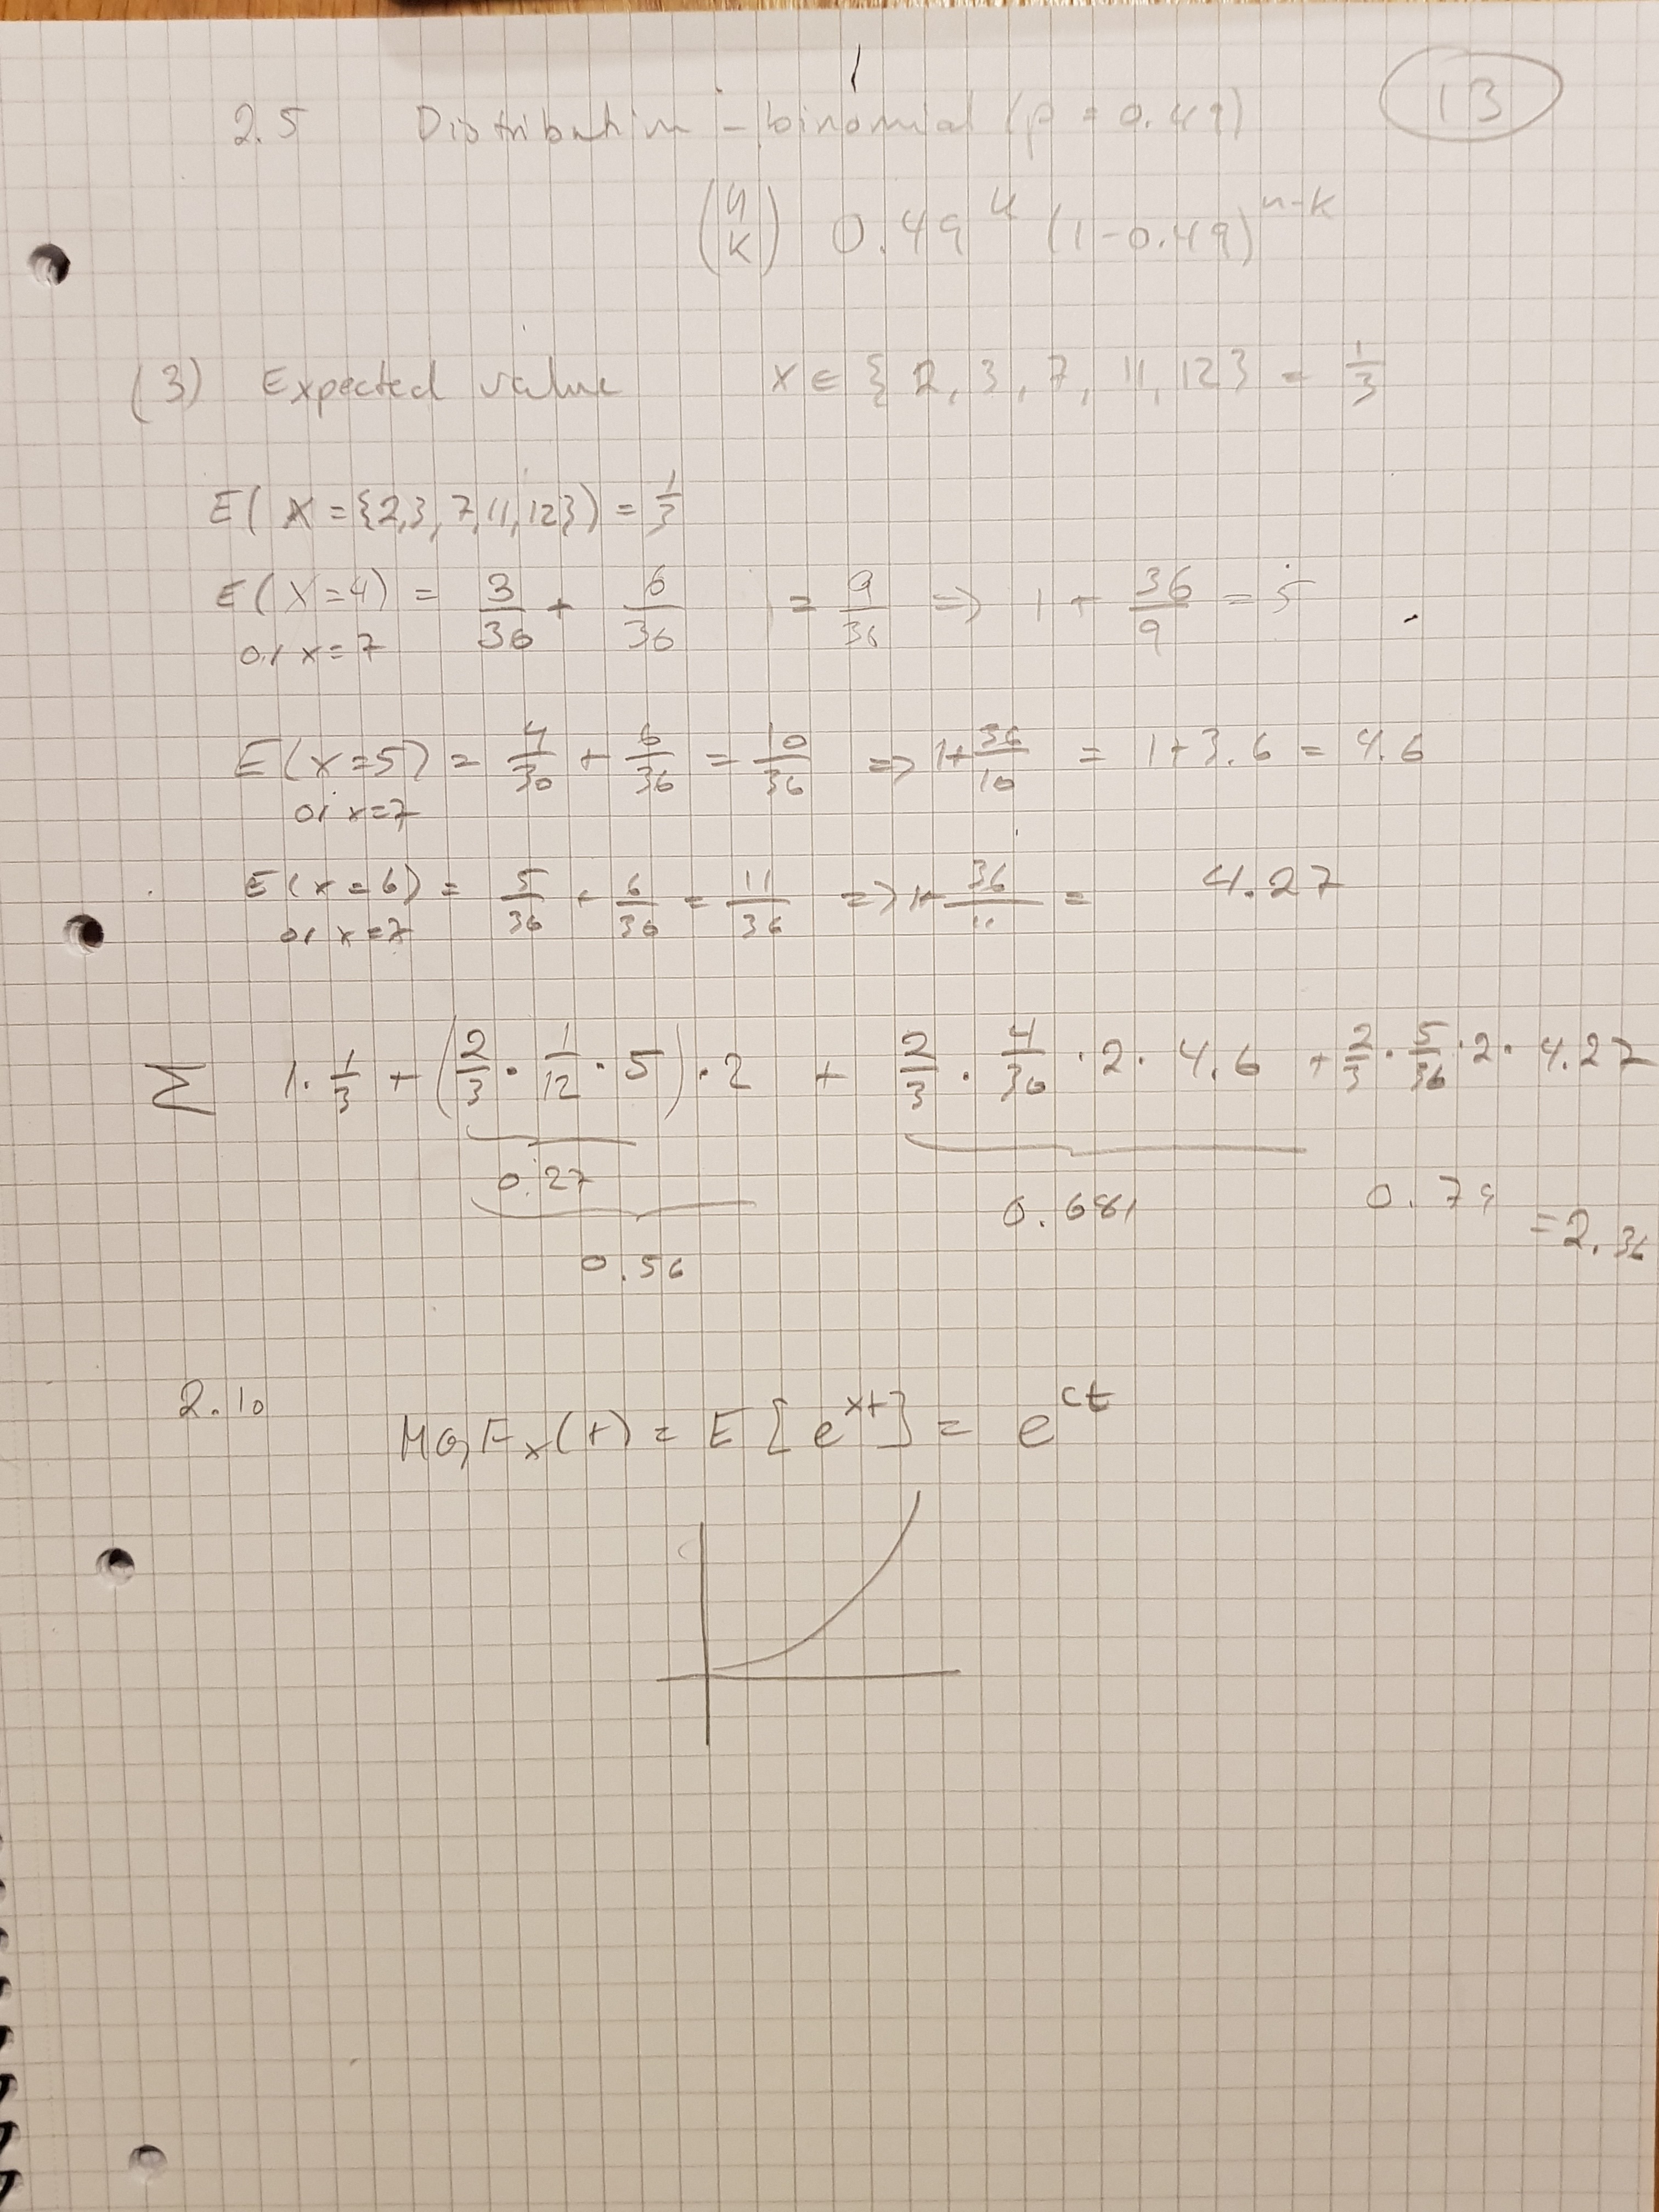 13
2.5 Distribution - binomial (p = 0.49)
(n k) 0.49^k (1-0.49)^{n-k}
(3) Expected value x ∈ {2, 3, 7, 11, 12} = 1/3
E(X={2,3,7,11,12}) = 1/3
E(X=4) = 3/36 + 6/36 = 9/36 => 1 + 36/9 = 5
or x=7
E(x=5) = 4/36 + 6/36 = 10/36 => 1+36/10 = 1+3.6 = 4.6
or x=7
E(x=6) = 5/36 + 6/36 = 11/36 => 1+36/11 = 4.27
or x=7
Σ 1·1/3 + (2/3 · 1/12 · 5)·2 + 2/3 · 4/36 · 2 · 4.6 + 2/3 · 5/36 · 2 · 4.27
0.27 0.681 0.79 = 2.36
0.56
2.10 MGF_x(t) = E[e^{xt}] = e^{ct}